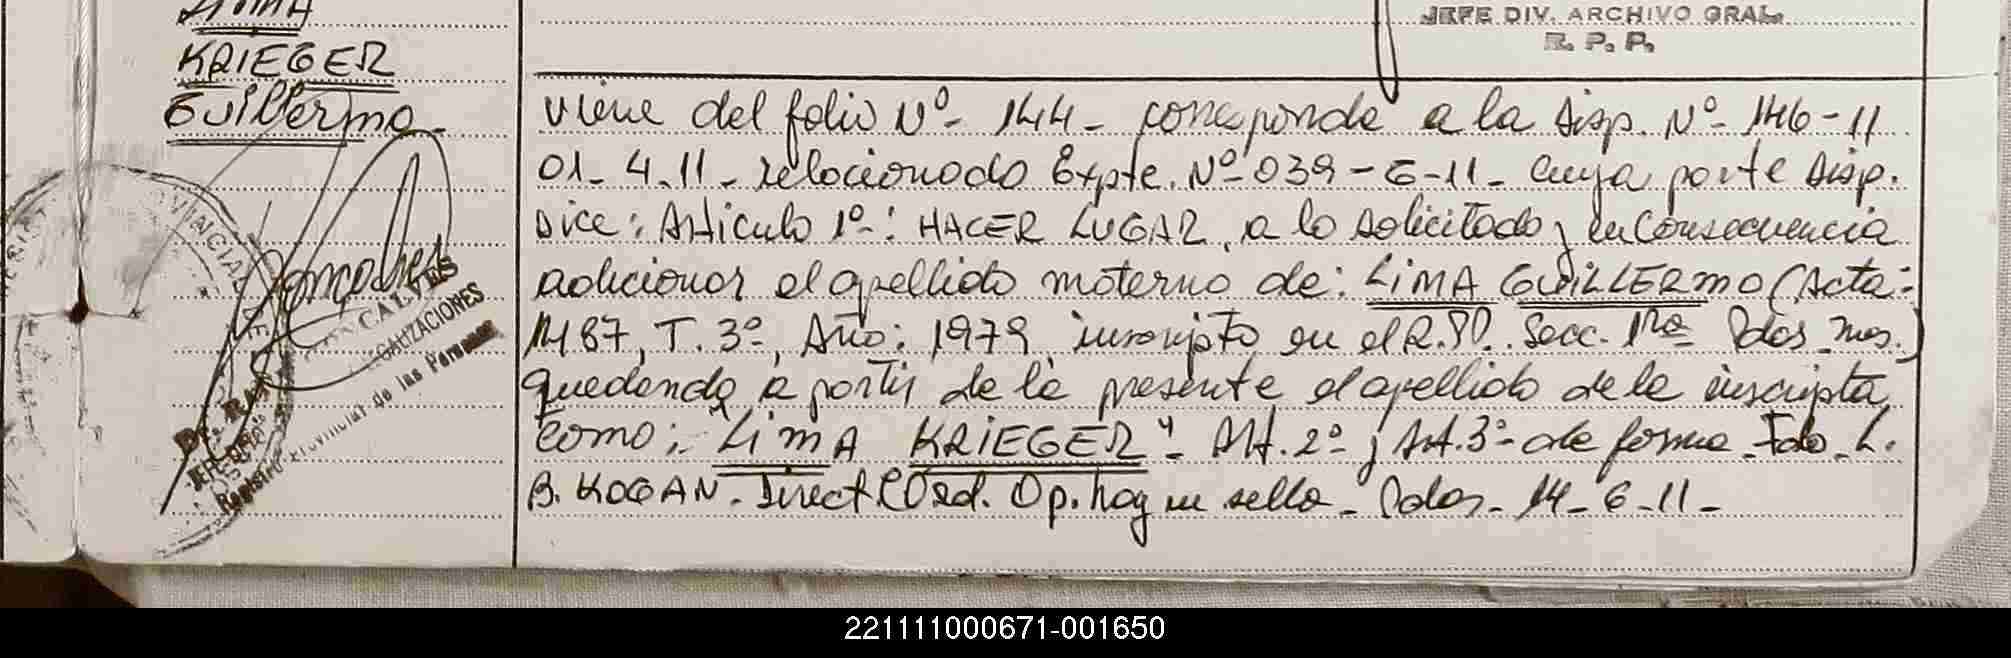 LIMA
KRIEGER
Guillermo
JEFE DIV. ARCHIVO GRAL.
R. P. P.
viene del folio Nº- 144- corresponde a la Disp. Nº- 146-11
01-4-11- relacionado Expte. Nº-039-G-11- cuya parte Disp.
dice: Articulo 1º-: HACER LUGAR, a lo solicitado y en Consecuencia
adicionar el apellido materno de: LIMA GUILLERMO (Acta:
1487, T. 3º-, Año: 1979, inscripto en el R.P.P. Secc. 1ra Pdas. Mnes.)
quedando a partir de la presente el apellido de la inscripta
Como: "LIMA KRIEGER"- Art. 2º- y Art. 3º- de forma - Fdo - L.
B. KOGAN - Direct. Ord. Op. hay un sello - Pdas - 14-6-11-
VINCIAL DE
GALIZACIONES
Registro Provincial de las Personas
221111000671-001650